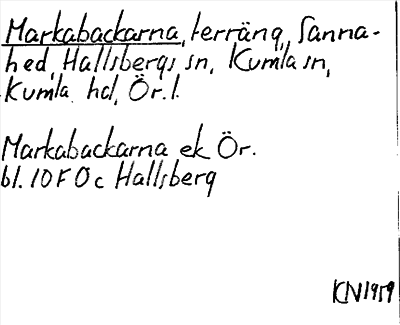 Markabackarna, terräng, Sanna-
hed, Hallsbergs sn, Kumla sn,
Kumla hd, Ör. l.
Markabackarna ek Ör.
bl. 10 F 0 c Hallsberg
KN 1959